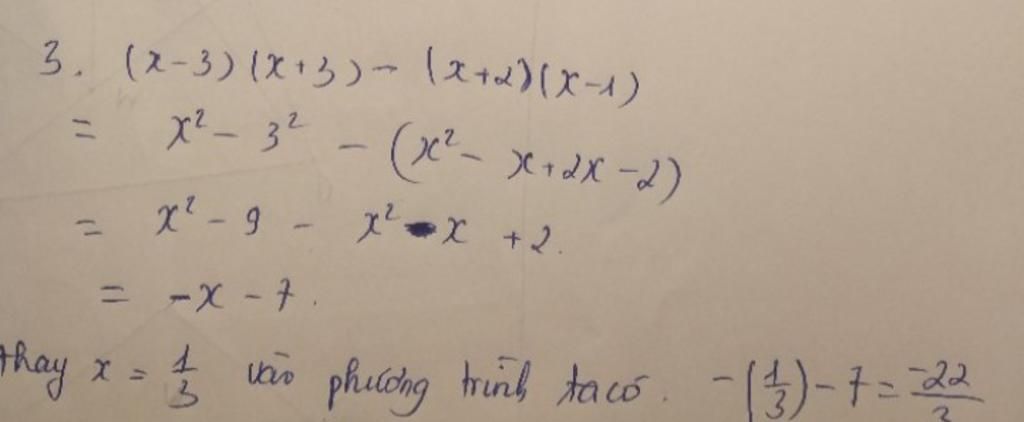 3. (x-3)(x+3) - (x+2)(x-1)
= x² - 3² - (x² - x + 2x - 2)
= x² - 9 - x² - x + 2.
= -x - 7.
thay x = 1/3 vào phương trình ta có. -(1/3) - 7 = -22/3